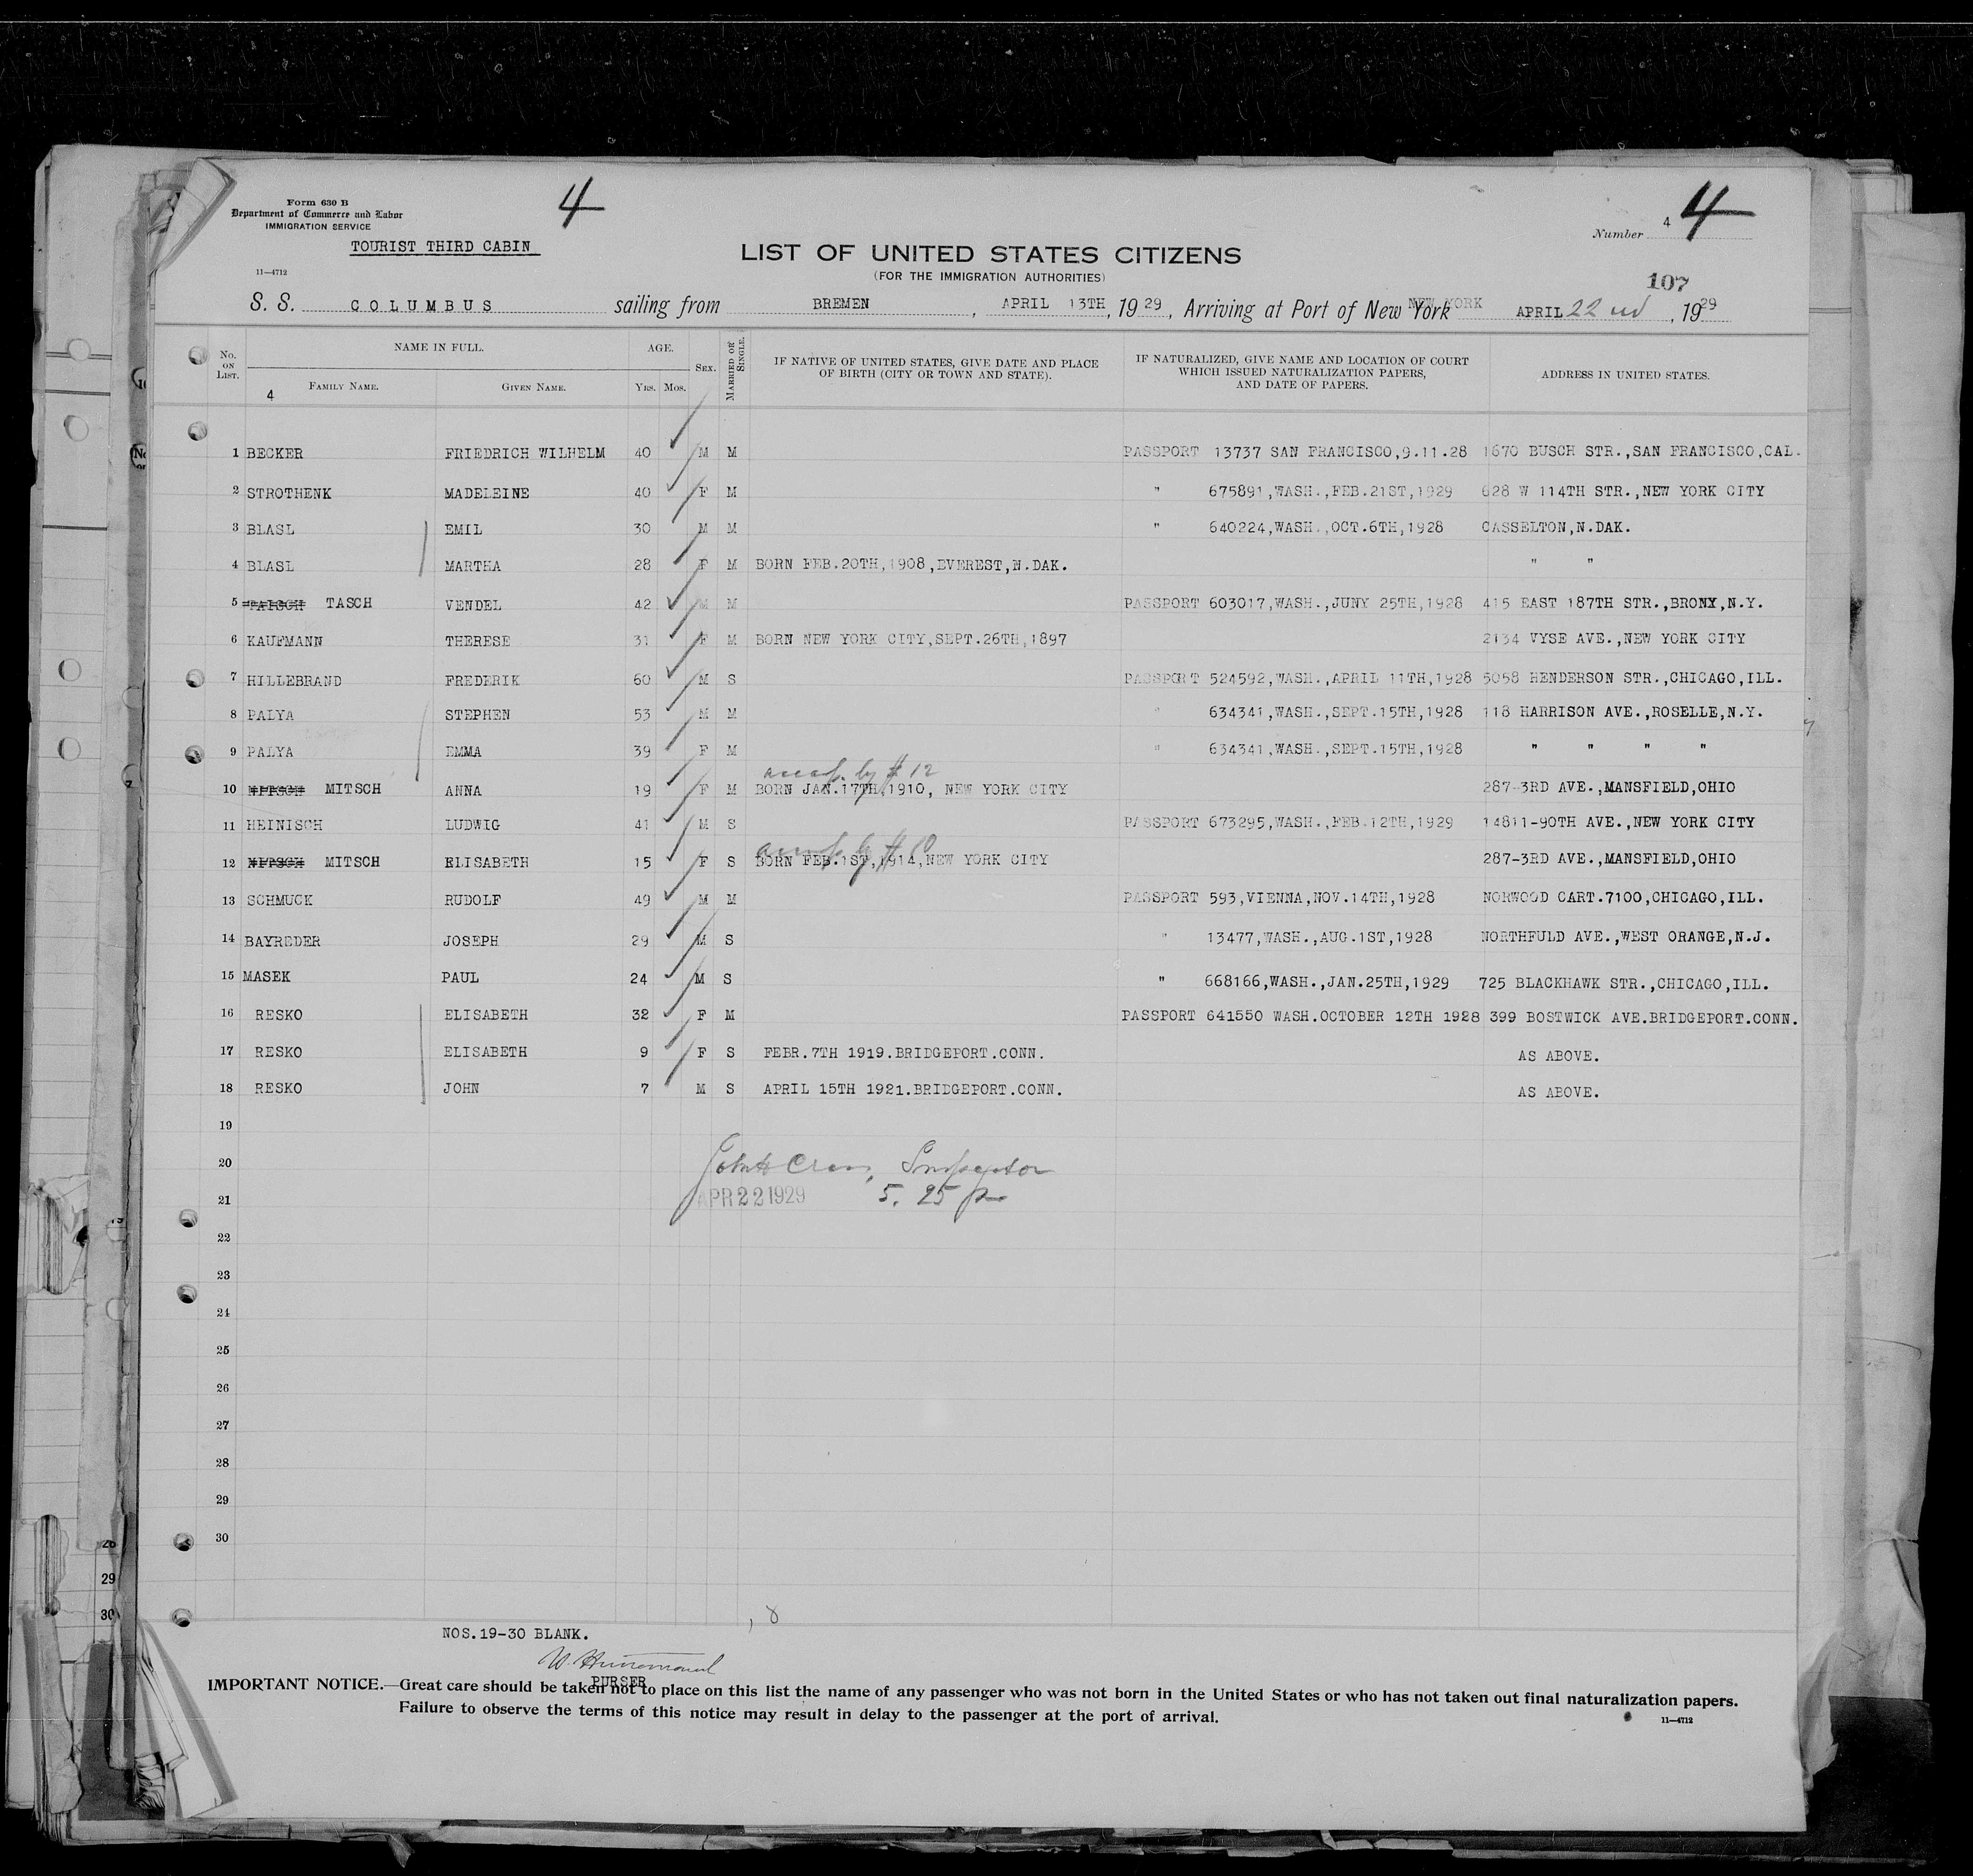 Form 630 B
Department of Commerce and Labor
IMMIGRATION SERVICE
4
TOURIST THIRD CABIN
11—4712
Number 4 4
LIST OF UNITED STATES CITIZENS
(FOR THE IMMIGRATION AUTHORITIES)
107
S. S. COLUMBUS sailing from BREMEN, APRIL 13TH, 1929, Arriving at Port of New York NEW YORK APRIL 22nd, 1929
No. ON LIST. NAME IN FULL. AGE. SEX. MARRIED OR SINGLE. IF NATIVE OF UNITED STATES, GIVE DATE AND PLACE OF BIRTH (CITY OR TOWN AND STATE). IF NATURALIZED, GIVE NAME AND LOCATION OF COURT WHICH ISSUED NATURALIZATION PAPERS, AND DATE OF PAPERS. ADDRESS IN UNITED STATES.
4 FAMILY NAME. GIVEN NAME. YRS. MOS.
1 BECKER FRIEDRICH WILHELM 40 M M PASSPORT 13737 SAN FRANCISCO,9.11.28 1670 BUSCH STR.,SAN FRANCISCO,CAL.
2 STROTHENK MADELEINE 40 F M " 675891,WASH.,FEB.21ST,1929 628 W 114TH STR.,NEW YORK CITY
3 BLASL EMIL 30 M M " 640224,WASH.,OCT.6TH,1928 CASSELTON,N.DAK.
4 BLASL MARTHA 28 F M BORN FEB.20TH,1908,EVEREST,N.DAK. " "
5 TASCH VENDEL 42 M M PASSPORT 603017,WASH.,JUNY 25TH,1928 415 EAST 187TH STR.,BRONX,N.Y.
6 KAUFMANN THERESE 31 F M BORN NEW YORK CITY,SEPT.26TH,1897 2134 VYSE AVE.,NEW YORK CITY
7 HILLEBRAND FREDERIK 60 M S PASSPORT 524592,WASH.,APRIL 11TH,1928 5058 HENDERSON STR.,CHICAGO,ILL.
8 PALYA STEPHEN 53 M M " 634341,WASH.,SEPT.15TH,1928 118 HARRISON AVE.,ROSELLE,N.Y.
9 PALYA EMMA 39 F M " 634341,WASH.,SEPT.15TH,1928 " " " "
accop. by # 12
10 NITSCH MITSCH ANNA 19 F M BORN JAN.17TH,1910, NEW YORK CITY 287-3RD AVE.,MANSFIELD,OHIO
11 HEINISCH LUDWIG 41 M S PASSPORT 673295,WASH.,FEB.12TH,1929 14811-90TH AVE.,NEW YORK CITY
accop by # 10
12 NITSCH MITSCH ELISABETH 15 F S BORN FEB.1ST,1914,NEW YORK CITY 287-3RD AVE.,MANSFIELD,OHIO
13 SCHMUCK RUDOLF 49 M M PASSPORT 593,VIENNA,NOV.14TH,1928 NORWOOD CART.7100,CHICAGO,ILL.
14 BAYREDER JOSEPH 29 M S " 13477,WASH.,AUG.1ST,1928 NORTHFULD AVE.,WEST ORANGE,N.J.
15 MASEK PAUL 24 M S " 668166,WASH.,JAN.25TH,1929 725 BLACKHAWK STR.,CHICAGO,ILL.
16 RESKO ELISABETH 32 F M PASSPORT 641550 WASH.OCTOBER 12TH 1928 399 BOSTWICK AVE.BRIDGEPORT.CONN.
17 RESKO ELISABETH 9 F S FEBR.7TH 1919.BRIDGEPORT.CONN. AS ABOVE.
18 RESKO JOHN 7 M S APRIL 15TH 1921.BRIDGEPORT.CONN. AS ABOVE.
19
20 John H Crew, Inspector
21 APR 22 1929 5. 25 pm
22
23
24
25
26
27
28
29
30
NOS.19-30 BLANK.
PURSER
IMPORTANT NOTICE.—Great care should be taken not to place on this list the name of any passenger who was not born in the United States or who has not taken out final naturalization papers.
Failure to observe the terms of this notice may result in delay to the passenger at the port of arrival.
11—4712